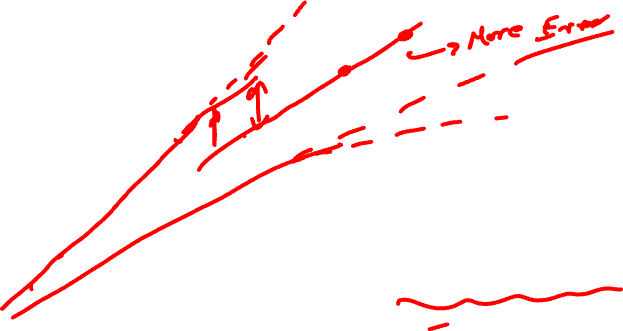 More Error